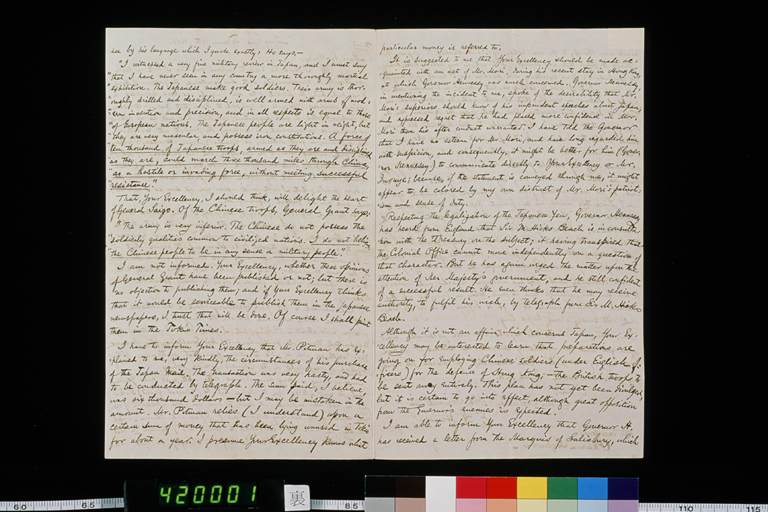 see by his language which I quote exactly: He says,—
"I witnessed a very fine military review in Japan, and I must say
"that I have never seen in any country a more thoroughly martial
"exhibition. The Japanese make good soldiers. Their army is thor-
"oughly drilled and disciplined, is well armed with arms of mod-
"ern invention and precision, and in all respects is equal to those
"of European nations. The Japanese people are light in weight, but
"they are very muscular and possess iron constitutions. A force of
"ten thousand of Japanese troops, armed as they are and disciplined
"as they are, could march three thousand miles through China,
"as a hostile or invading force, without meeting successful
"resistance."
That, Your Excellency, I should think, will delight the heart
of General Saigo. Of the Chinese troops, General Grant says,
"The army is very inferior. The Chinese do not possess the
"soldierly qualities common to civilized nations. I do not believe
"the Chinese people to be in any sense a military people."
I am not informed, Your Excellency, whether these opinions
of General Grant have been published or not; but there is
no objection to publishing them; and if Your Excellency thinks
that it would be serviceable to publish them in the Japanese
newspapers, I trust that will be done. Of course I shall print
them in the Tokio Times.
I have to inform Your Excellency that Mr. Pitman has ex-
plained to me, very kindly, the circumstances of his purchase
of the Japan Mail. The transaction was very hasty, and had
to be conducted by telegraph. The sum paid, I believe
was six thousand dollars — but I may be mistaken in the
amount. Mr. Pitman relies (I understand) upon a
certain sum of money that has been lying unused in Tokio
for about a year. I presume Your Excellency knows what
particular money is referred to.
It is suggested to me that Your Excellency should be made ac-
quainted with an act of Mr. Mori, during his recent stay in Hong Kong,
at which Governor Hennessy was much concerned. Governor Hennessy,
in mentioning the incident to me, spoke of the desirability that Mr.
Mori's superiors should know of his imprudent speeches about Japan,
and expressed regret that he had placed more confidence in Mr.
Mori than his after conduct warranted. I have told the Governor
that I have no esteem for Mr. Mori, and have long regarded him
with suspicion, and consequently, it might be better for him (Gover-
nor Hennessy) to communicate directly to Your Excellency or Mr.
Inouye; because, if the statement is conveyed through me, it might
appear to be colored by my own distrust of Mr. Mori's patriot-
ism and sense of duty.
Respecting the legalization of the Japanese Yen, Governor Hennessy
has heard from England that Sir M. Hicks Beach is in consulta-
tion with the Treasury on the subject; it having transpired that
the Colonial Office cannot move independently on a question of
that character. But he has again urged the matter upon the
attention of Her Majesty's government, and he is still confident
of a successful result. He even thinks that he may receive
authority, to fulfil his wish, by telegraph from Sir M. Hicks
Beach.
Although it is not an affair which concerns Japan, Your Ex-
cellency may be interested to learn that preparations are
going on for employing Chinese soldiers (under English of-
ficers) for the defence of Hong Kong, — the British troops to
be sent away entirely. This plan has not yet been divulged,
but it is certain to go into effect, although great opposition
from the Governor's enemies is expected.
I am able to inform Your Excellency that Governor H.
has received a letter from the Marquis of Salisbury, which
60
65
420001
裏
85
110
115